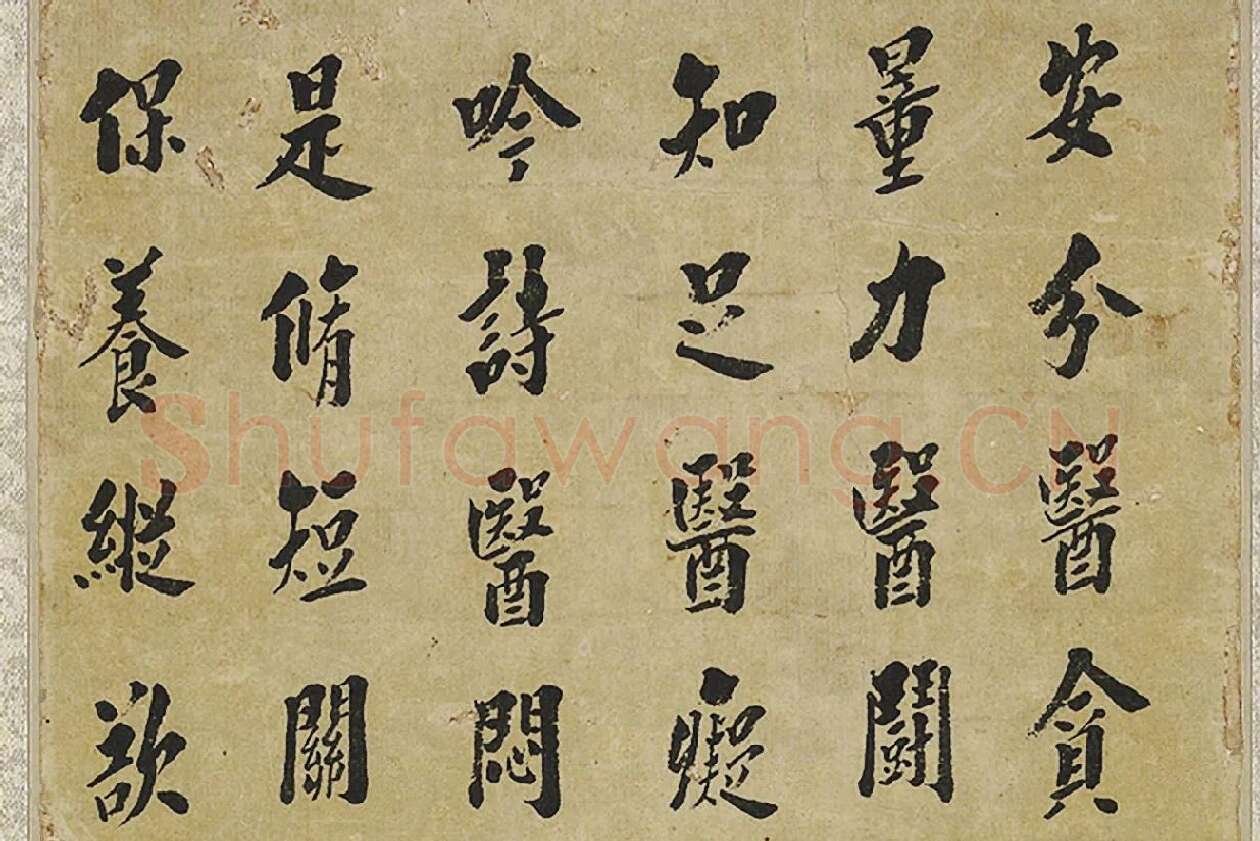 安分醫貪
量力醫鬪
知足醫癡
吟詩醫悶
是脩短關
保養縱欲
Shufawang.CN